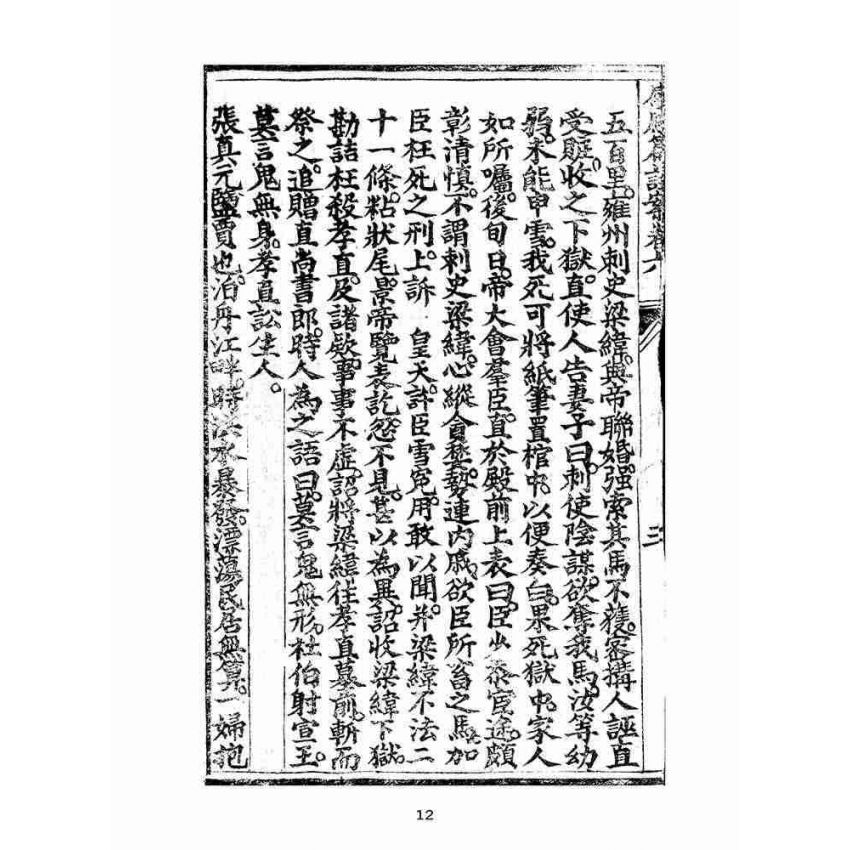 五百里。雍州刺史梁緯。與帝聯婚。強索其馬不獲。密搆人誣直
受贓。收之下獄。直使人告妻子曰。刺使陰謀。欲奪我馬。汝等幼
弱。未能申雪。我死可將紙筆置棺中。以便奏白。果死獄中。家人
如所囑。後旬日。帝大會羣臣。直於殿前上表曰。臣少忝宦途。頗
彰清慎。不謂刺史梁緯。心縱貪婪。勢連內戚。欲臣所畜之馬。加
臣枉死之刑。上訴 皇天。許臣雪冤。用敢以聞。并梁緯不法二
十一條。粘狀尾。景帝覽表訖。忽不見。甚以為異。詔收梁緯下獄。
勘詰枉殺孝直。及諸欵。事事不虛。詔將梁緯往孝直墓前。斬而
祭之。追贈直尚書郎。時人為之語曰。莫言鬼無形。杜伯射宣王。
莫言鬼無身。孝直訟生人。
張真元鹽賈也。泊舟江畔。時江水暴發。漂蕩民居無算。一婦抱
三
12